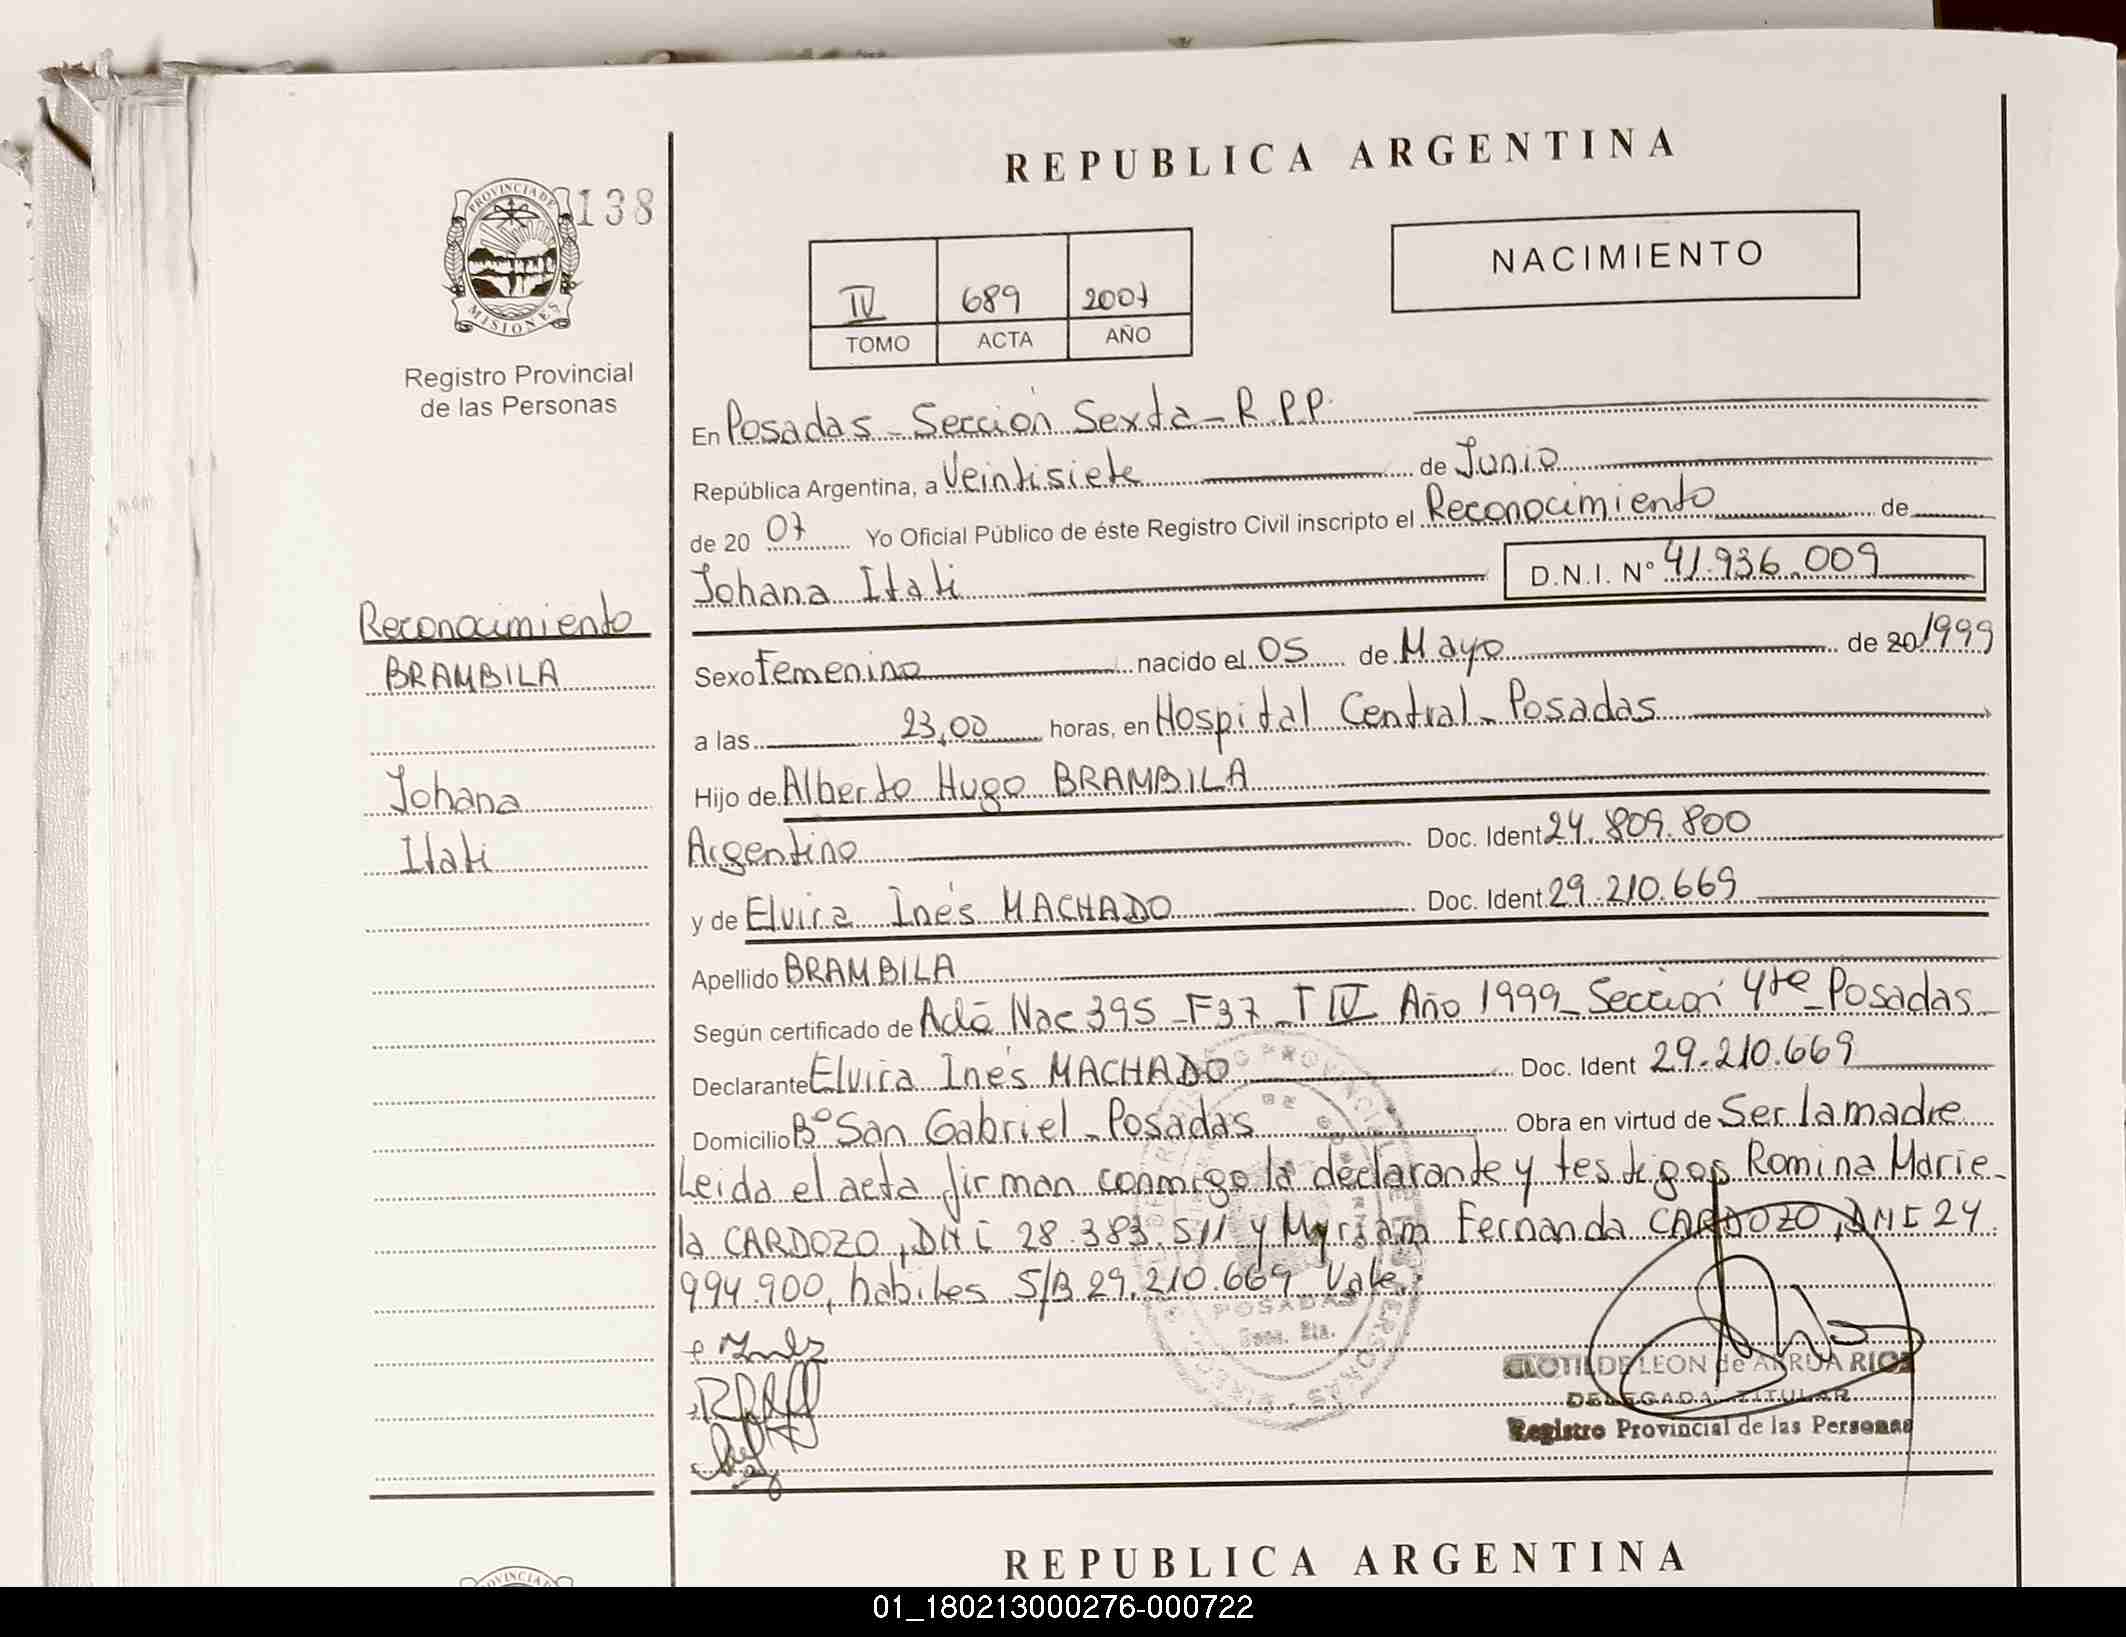 REPUBLICA ARGENTINA
PROVINCIA DE
MISIONES
138
Registro Provincial
de las Personas
IV 689 2007
TOMO ACTA AÑO
NACIMIENTO
En Posadas - Sección Sexta - R.P.P.
República Argentina, a Veintisiete de Junio
de 20 07 Yo Oficial Público de éste Registro Civil inscripto el Reconocimiento de
Johana Itati D.N.I. N° 41.936.009
Reconocimiento
BRAMBILA
Johana
Itati
Sexo Femenino nacido el 05 de Mayo de 20/1999
a las 23,00 horas, en Hospital Central - Posadas
Hijo de Alberto Hugo BRAMBILA
Argentino Doc. Ident 24.809.800
y de Elvira Inés MACHADO Doc. Ident 29.210.669
Apellido BRAMBILA
Según certificado de Acta Nac 395 - F37 - T IV Año 1999 - Sección 4ta - Posadas
Declarante Elvira Inés MACHADO Doc. Ident 29.210.669
Domicilio B° San Gabriel - Posadas Obra en virtud de Ser la madre
Leida el acta firman conmigo la declarante y testigos Romina Marie-
la CARDOZO, DNI 28.383.511 y Myriam Fernanda CARDOZO, DNI 24.
994.900, habiles S/B 29.210.669 Vale.
POSADAS
Secc. 6ta.
CLOTILDE LEON de ARRUA RIOS
DELEGADA TITULAR
Registro Provincial de las Personas
REPUBLICA ARGENTINA
01_180213000276-000722